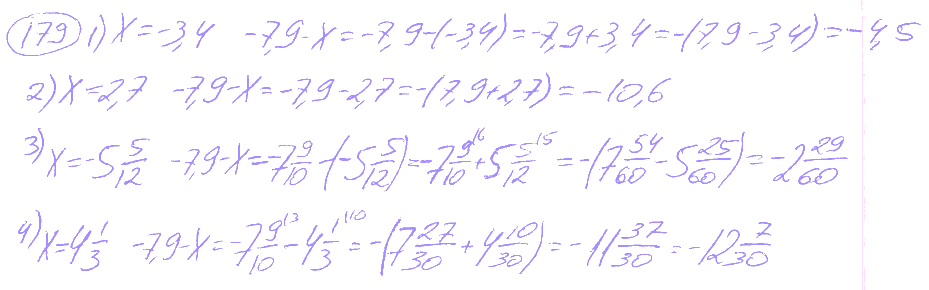 179 1) X=-3,4 -7,9-X=-7,9-(-3,4)=-7,9+3,4=-(7,9-3,4)=-4,5
2) X=2,7 -7,9-X=-7,9-2,7=-(7,9+2,7)=-10,6
3) X=-5 5/12 -7,9-X=-7 9/10-(-5 5/12)=-7 9/10^{16}+5 5/12^{15}=-(7 54/60-5 25/60)=-2 29/60
4) X=4 1/3 -7,9-X=-7 9/10^{13}-4 1/3^{110}=-(7 27/30+4 10/30)=-11 37/30=-12 7/30